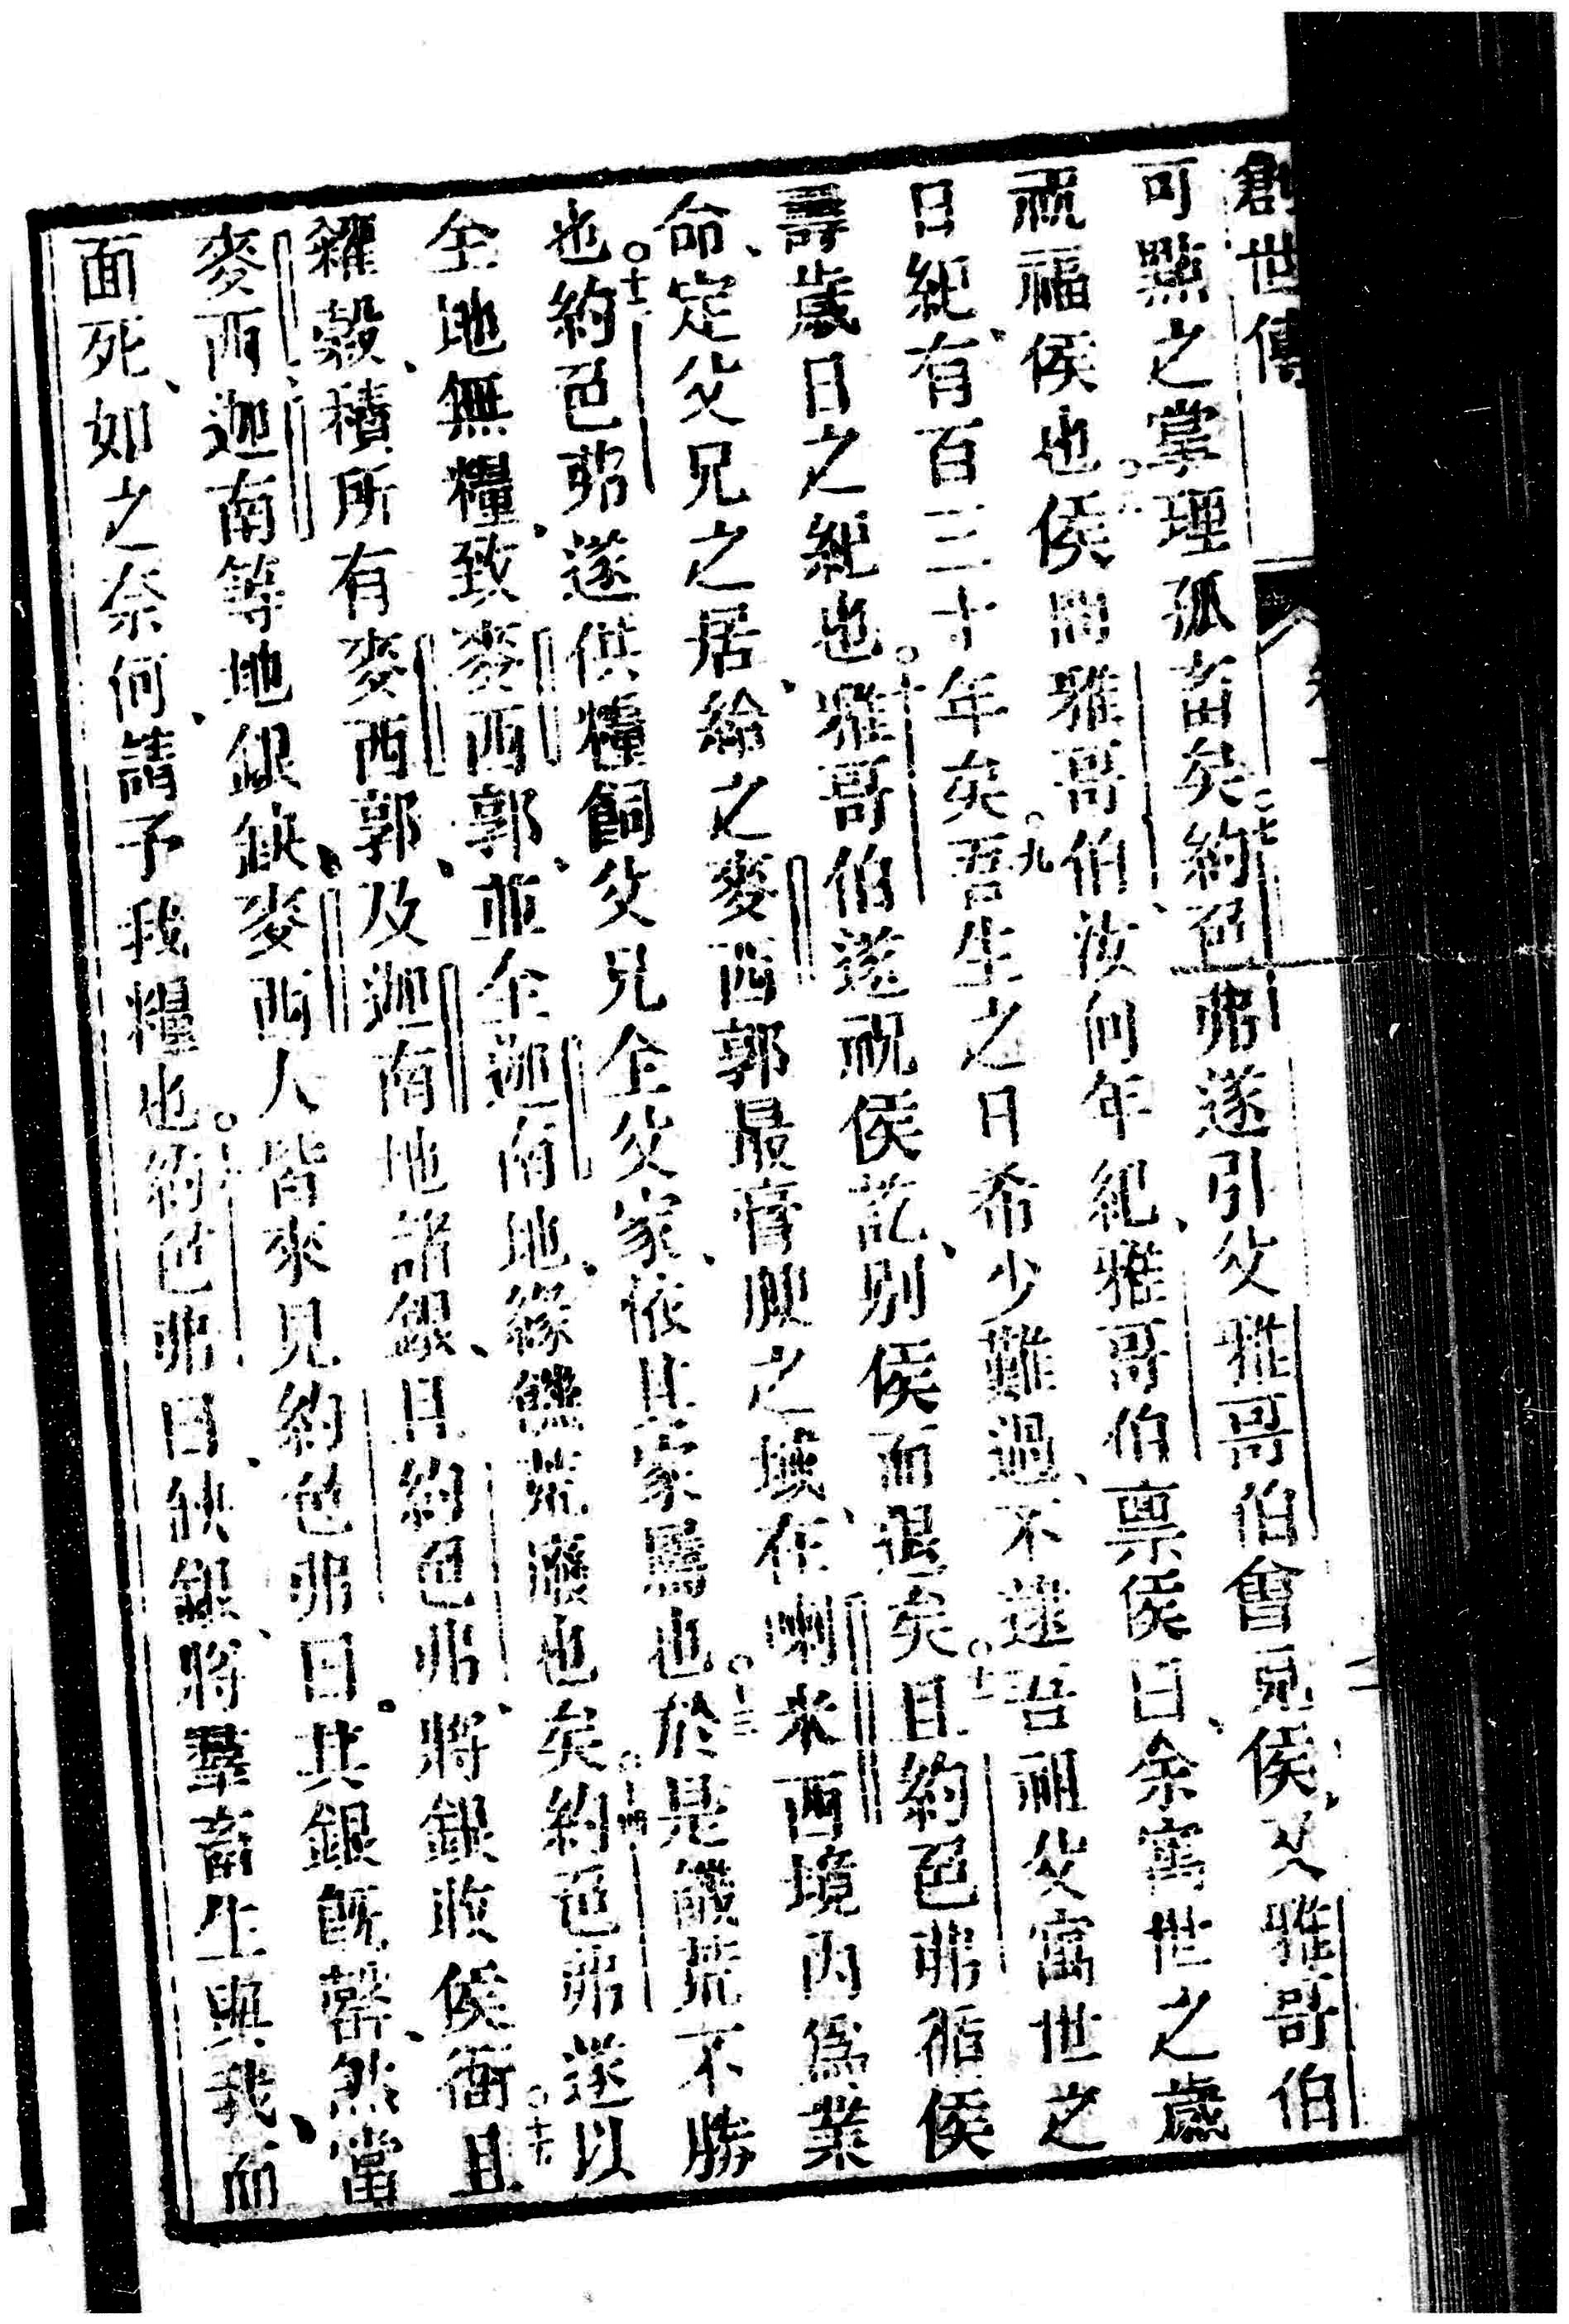 創世傳
可點之掌理孤畜矣。七約色弗遂引父雅哥伯會見侯、又雅哥伯
祝福侯也。八侯問雅哥伯、汝何年紀、雅哥伯禀侯曰、余寓世之歲
日紀、有百三十年矣。九吾生之日希少難過、不逮吾祖父寓世之
壽歲日之紀也。十雅哥伯遂祝侯訖、別侯而退矣。十一且約色弗循侯
命、定父兄之居、給之麥西郭最膏腴之壌、在喇米西境內爲業
也。十二約色弗遂供糧飼父兄全父家、依其家屬也。十三於是饑荒不勝
全地無糧、致麥西郭、並全迦南地、緣饑荒廢也矣。十四約色弗遂以
糴穀、積所有麥西郭、及迦南地諸銀、且約色弗、將銀收侯衙。十五且
麥西迦南等地銀缺、麥西人皆來見約色弗曰。其銀旣罄、然當
面死、如之奈何、請予我糧也。十六約色弗曰、缺銀、將羣畜生與我、而